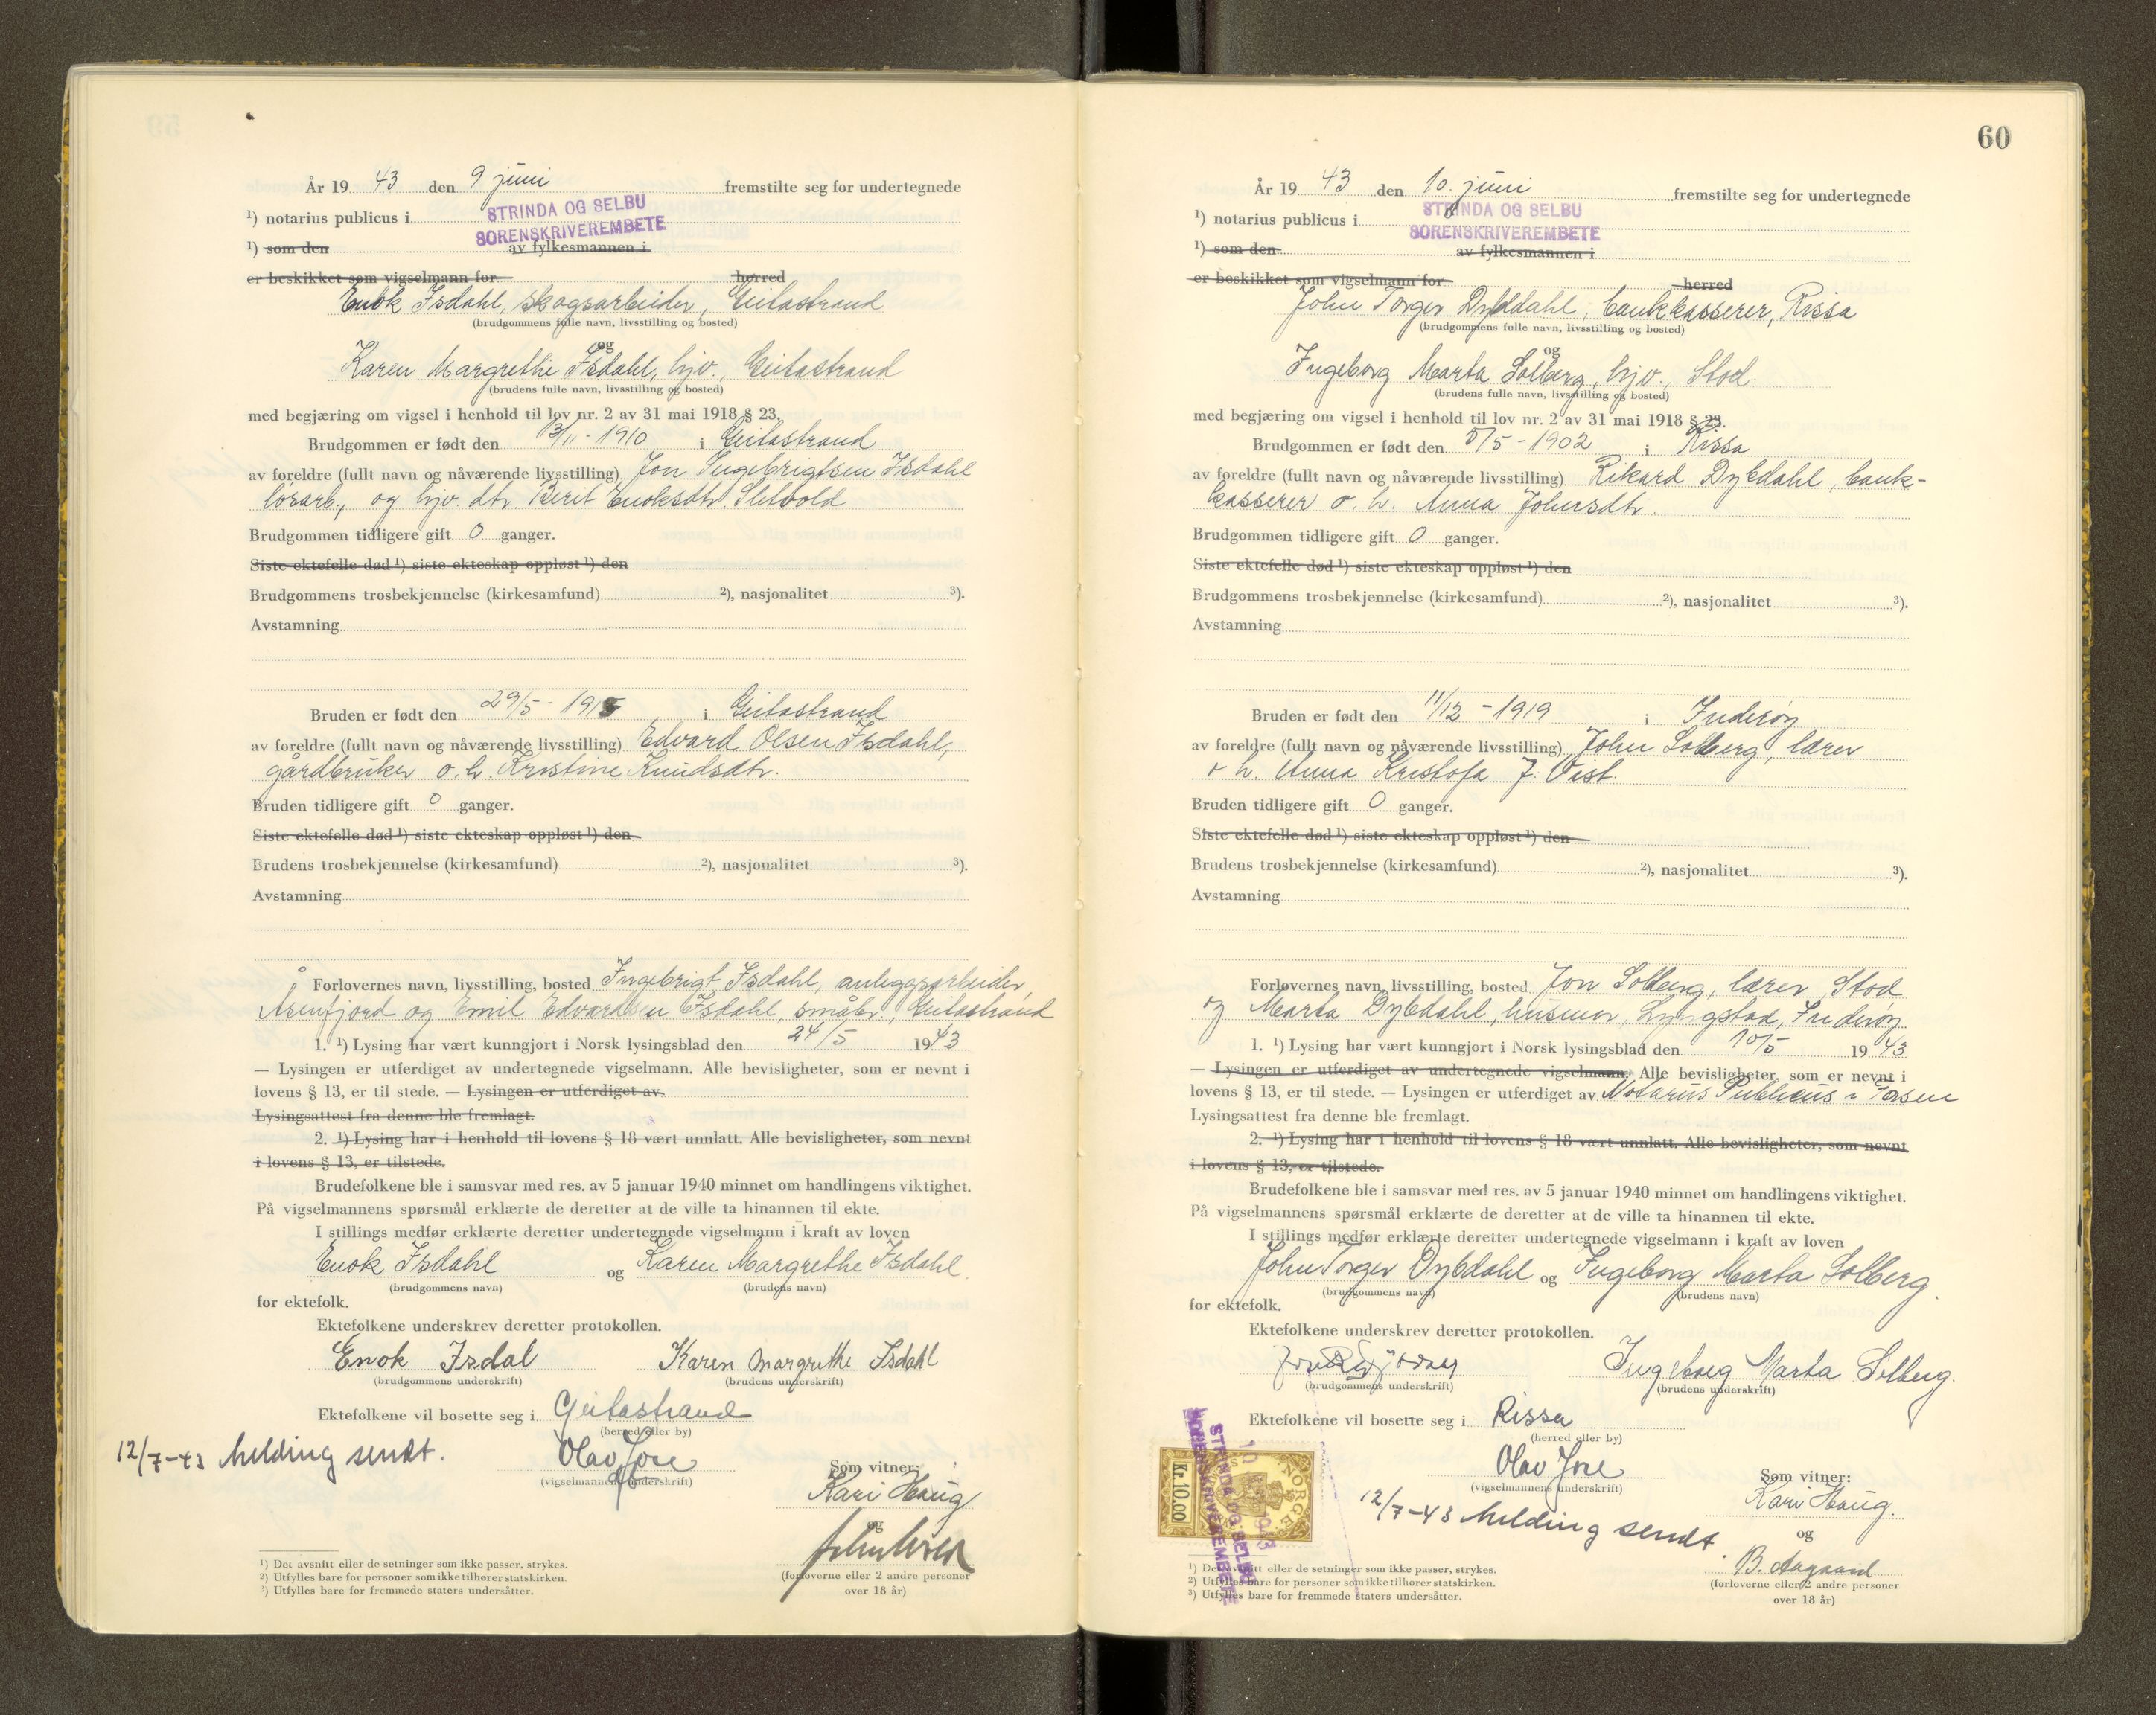 År 19 43 den 9 juni fremstilte seg for undertegnede
¹) notarius publicus i STRINDA OG SELBU
SORENSKRIVEREMBETE
¹) som den av fylkesmannen i
er beskikket som vigselmann for herred
Enok Isdahl, skogsarbeider, Geitastrand
(brudgommens fulle navn, livsstilling og bosted)
og
Karen Margrethe Isdahl, hjv., Geitastrand
(brudens fulle navn, livsstilling og bosted)
med begjæring om vigsel i henhold til lov nr. 2 av 31 mai 1918 § 23.
Brudgommen er født den 13/11-1910 i Geitastrand
av foreldre (fullt navn og nåværende livsstilling) Jon Ingebrigtsen Isdahl
løsarb., og hjv. dtr. Berit Enoksdtr.
Brudgommen tidligere gift 0 ganger.
Siste ektefelle død ¹) siste ekteskap oppløst ¹) den
Brudgommens trosbekjennelse (kirkesamfund) ²), nasjonalitet ³).
Avstamning
Bruden er født den 29/5-1915 i Geitastrand
av foreldre (fullt navn og nåværende livsstilling) Edvard Olsen Isdahl,
gårdbruker o. h. Kristine Knudsdtr.
Bruden tidligere gift 0 ganger.
Siste ektefelle død ¹) siste ekteskap oppløst ¹) den
Brudens trosbekjennelse (kirkesamfund) ²), nasjonalitet ³).
Avstamning
Forlovernes navn, livsstilling, bosted Ingebrigt Isdahl, anleggsarbeider,
Åsenfjord og Emil Edvardsen Isdahl, småbr., Geitastrand
1. ¹) Lysing har vært kunngjort i Norsk lysingsblad den 24/5 1943
— Lysingen er utferdiget av undertegnede vigselmann. Alle bevisligheter, som er nevnt i
lovens § 13, er til stede. — Lysingen er utferdiget av
Lysingsattest fra denne ble fremlagt.
2. ¹) Lysing har i henhold til lovens § 18 vært unnlatt. Alle bevisligheter, som nevnt
i lovens § 13, er tilstede.
Brudefolkene ble i samsvar med res. av 5 januar 1940 minnet om handlingens viktighet.
På vigselmannens spørsmål erklærte de deretter at de ville ta hinannen til ekte.
I stillings medfør erklærte deretter undertegnede vigselmann i kraft av loven
Enok Isdahl og Karen Margrethe Isdahl.
(brudgommens navn) (brudens navn)
for ektefolk.
Ektefolkene underskrev deretter protokollen.
Enok Isdal Karen Margrethe Isdahl
(brudgommens underskrift) (brudens underskrift)
Ektefolkene vil bosette seg i Geitastrand
(herred eller by)
12/7-43 Melding sendt. Olav Jore
(vigselmannens underskrift)
Som vitner:
Kari Haug
og
(forloverne eller 2 andre personer
over 18 år)
¹) Det avsnitt eller de setninger som ikke passer, strykes.
²) Utfylles bare for personer som ikke tilhører statskirken.
³) Utfylles bare for fremmede staters undersåtter.
60
År 19 43 den 10. juni fremstilte seg for undertegnede
¹) notarius publicus i STRINDA OG SELBU
SORENSKRIVEREMBETE
¹) som den av fylkesmannen i
er beskikket som vigselmann for herred
John Torger Dybdahl, bankkasserer, Rissa
(brudgommens fulle navn, livsstilling og bosted)
og
Ingeborg Marta Solberg, hjv., Stod
(brudens fulle navn, livsstilling og bosted)
med begjæring om vigsel i henhold til lov nr. 2 av 31 mai 1918 § 23.
Brudgommen er født den 5/5-1902 i Rissa
av foreldre (fullt navn og nåværende livsstilling) Rikard Dybdahl, bank-
kasserer o. h. Anna Johnsdtr.
Brudgommen tidligere gift 0 ganger.
Siste ektefelle død ¹) siste ekteskap oppløst ¹) den
Brudgommens trosbekjennelse (kirkesamfund) ²), nasjonalitet ³).
Avstamning
Bruden er født den 11/12-1919 i Inderøy
av foreldre (fullt navn og nåværende livsstilling) John Solberg, lærer
o h. Anna Kristofa J. Vist.
Bruden tidligere gift 0 ganger.
Siste ektefelle død ¹) siste ekteskap oppløst ¹) den
Brudens trosbekjennelse (kirkesamfund) ²), nasjonalitet ³).
Avstamning
Forlovernes navn, livsstilling, bosted Jon Solberg, lærer Stod
og Marta Dybdahl, husmor, Lyngstad, Inderøy
1. ¹) Lysing har vært kunngjort i Norsk lysingsblad den 10/5 19 43
— Lysingen er utferdiget av undertegnede vigselmann. Alle bevisligheter, som er nevnt i
lovens § 13, er til stede. — Lysingen er utferdiget av Notarius Publicus i Fosen
Lysingsattest fra denne ble fremlagt.
2. ¹) Lysing har i henhold til lovens § 18 vært unnlatt. Alle bevisligheter, som nevnt
i lovens § 13, er tilstede.
Brudefolkene ble i samsvar med res. av 5 januar 1940 minnet om handlingens viktighet.
På vigselmannens spørsmål erklærte de deretter at de ville ta hinannen til ekte.
I stillings medfør erklærte deretter undertegnede vigselmann i kraft av loven
John Torger Dybdahl og Ingeborg Marta Solberg.
(brudgommens navn) (brudens navn)
for ektefolk.
Ektefolkene underskrev deretter protokollen.
Ingeborg Marta Solberg.
(brudgommens underskrift) (brudens underskrift)
Ektefolkene vil bosette seg i Rissa
(herred eller by)
Olav Jore
(vigselmannens underskrift)
12/7-43 Melding sendt.
Som vitner:
Kari Haug.
og
B. Aagaard
(forloverne eller 2 andre personer
over 18 år)
NORGE
Kr. 10,00
STRINDA OG SELBU
SORENSKRIVEREMBETE
¹) Det avsnitt eller de setninger som ikke passer, strykes.
²) Utfylles bare for personer som ikke tilhører statskirken.
³) Utfylles bare for fremmede staters undersåtter.